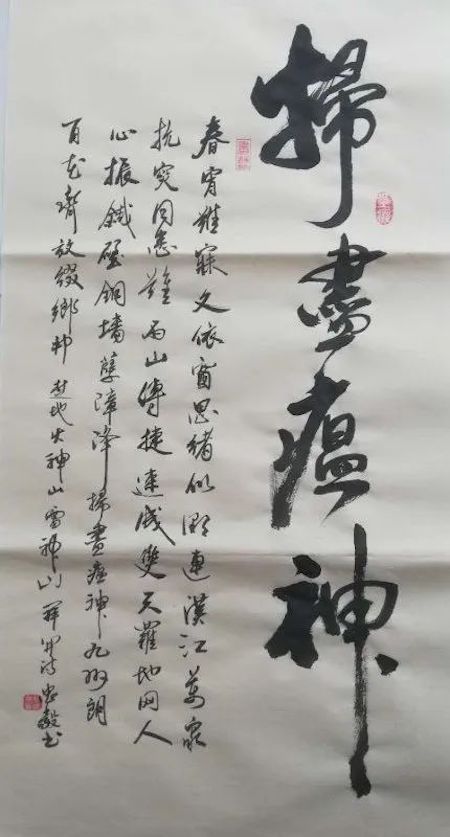 掃盡瘟神
春宵難寐久依窗思緒似潮連漢江萬衆
抗灾同患難兩山傳捷速成雙天羅地网人
心振鐵壁銅墻孽障降掃盡瘟神九州朗
百花齊放綴鄉邦 楚地火神山雷神山 詩 书